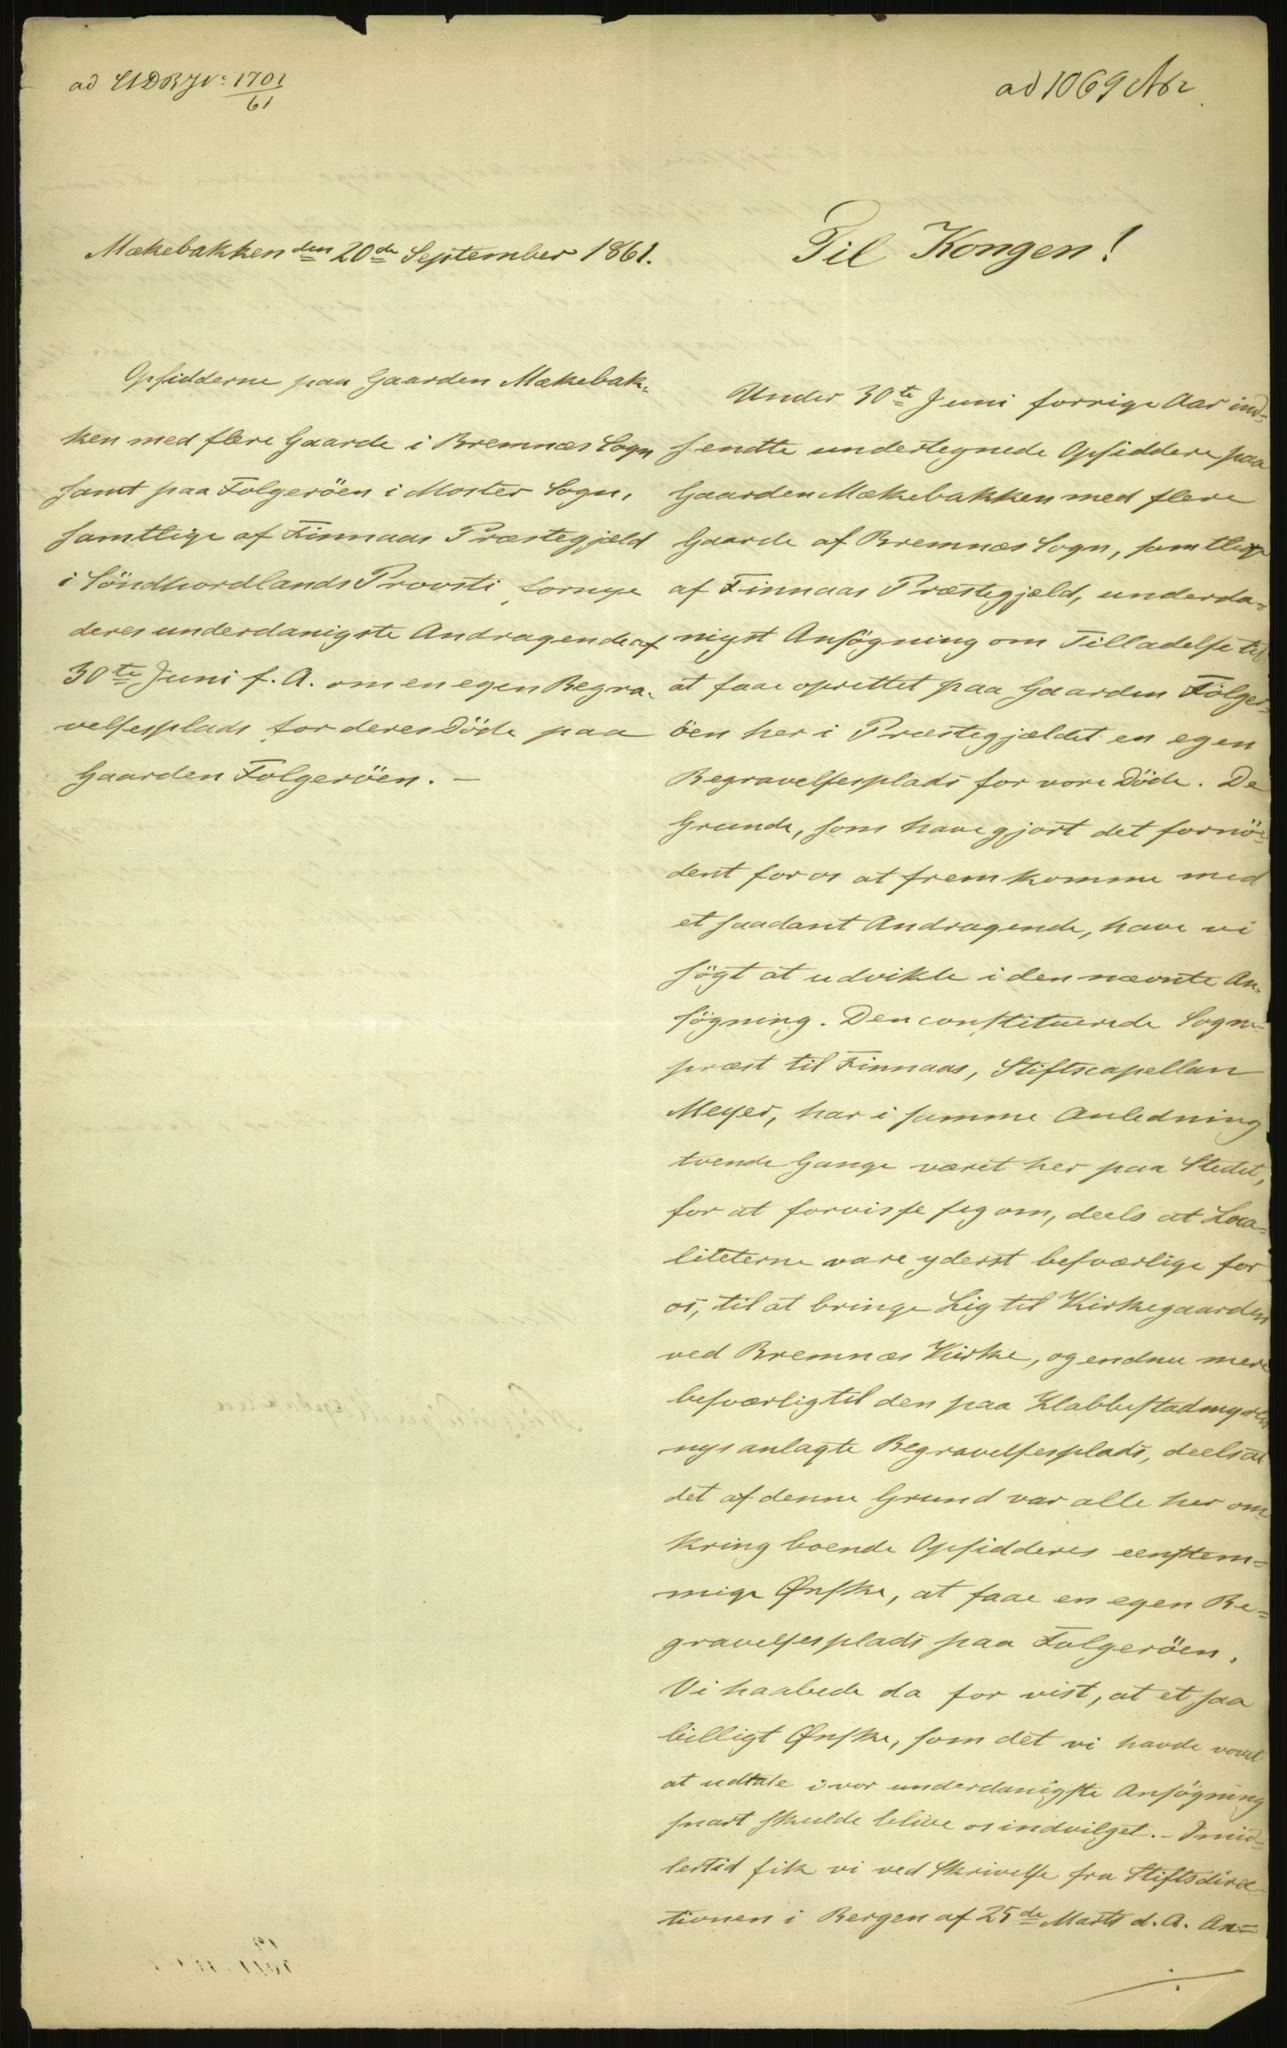 ad 1701/61
ad 1069
Mækebakken den 20de September 1861.
Til Kongen!
Opsidderne paa Gaarden Mækebak-
ken med flere Gaarde i Bremnæs Sogn
samt paa Folgeröen i Moster Sogn,
samtlige af Finnaas Præstegjæld
i Söndhordlands Provsti, fornye
deres underdanigste Andragende af
30te Juni f. A. om en egen Begra-
velsesplads for deres Döde paa
Gaarden Folgeröen. —
Under 30te Juni forrige Aar ind-
sendte undertegnede Opsiddere paa
Gaarden Mækebakken med flere
Gaarde af Bremnæs Sogn, samtlige
af Finnaas Præstegjæld, underda-
nigst Ansögning om Tilladelse til
at faae oprettet paa Gaarden Folger-
öen her i Præstegjældet en egen
Begravelsesplads for vore Döde. De
Grunde, som have gjort det fornö-
dent for os at fremkomme med
et saadant Andragende, have vi
sögt at udvikle i den nævnte An-
sögning. Den constituerede Sogne-
præst til Finnaas, Stiftscapellan
Meyer, har i samme Anledning
tvende Gange været her paa Stedet,
for at forvisse sig om, deels at Loca-
liteterne vare yderst besværlige for
os, til at bringe Lig til Kirkegaarden
ved Bremnæs Kirke, og endnu mere
besværlig til den paa Klabbestadmyren
nys anlagte Begravelsesplads, deels at
det af denne Grund var alle her om
kring boende Opsidderes eenstem-
mige Ønske, at faae en egen Be-
gravelsesplads paa Folgeröen.
Vi haabede da for vist, at et saa
billigt Ønske, som det vi havde vovet
at udtale i vor underdanigste Ansögning
snart skulde blive os indvilget. – Imid-
lertid fik vi ved Skrivelse fra Stiftsdirec-
tionen i Bergen af 25de Marts d. A. An-